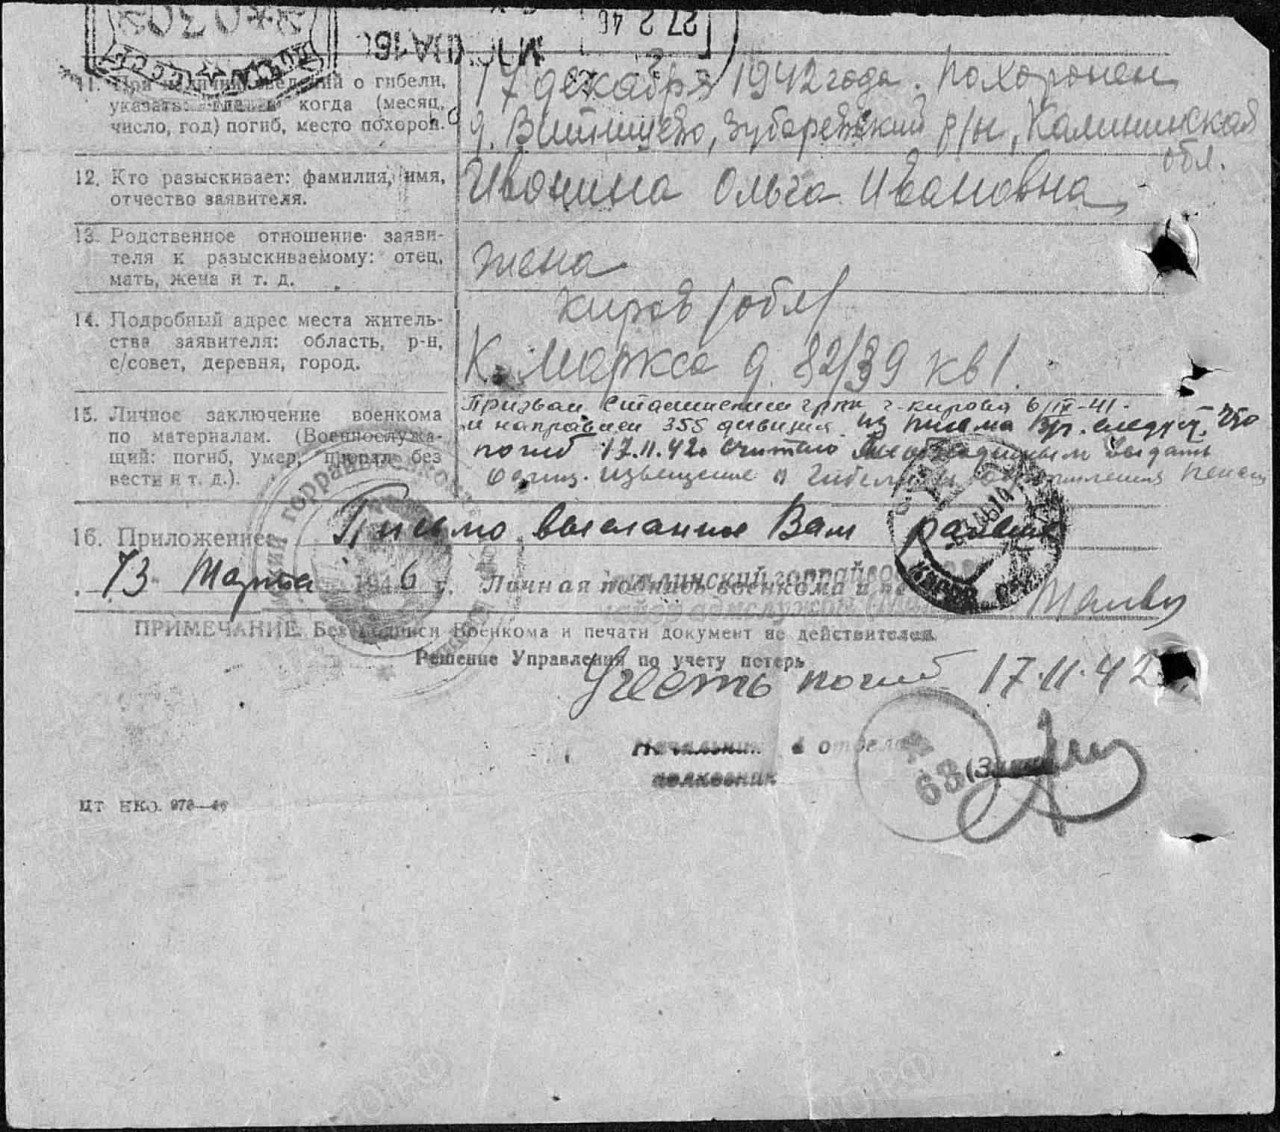 МОСКВА
27 2 46
11. При наличии сведений о гибели,
указать: когда (месяц,
число, год) погиб, место похорон.
17 декабря 1942 года. Похоронен
д. Зубаревский р/н, Калининская
обл.
12. Кто разыскивает: фамилия, имя,
отчество заявителя.
Ивонина Ольга Ивановна
13. Родственное отношение заяви-
теля к разыскиваемому: отец,
мать, жена и т. д.
жена
14. Подробный адрес места житель-
ства заявителя: область, р-н,
с/совет, деревня, город.
Киров (обл)
К. Маркса д. 82/39 кв 1.
15. Личное заключение военкома
по материалам. (Военнослужа-
щий: погиб, умер, пропал без
вести и т. д.).
Призван Сталинским грвк г. Кирова
и направлен 355 дивизия. Из письма следует, что
погиб 17.11.42. Считаю выдать
извещение о гибели пенсии
16. Приложение: Письмо высланное Вам ранее
13 Марта 1946 г. Личная подпись военкома и печать
ПРИМЕЧАНИЕ. Без подписи Военкома и печати документ не действителен.
Решение Управления по учету потерь
Учесть погиб 17.11.42
Начальник 4 отдела
полковник
68
ЦТ НКО. 973—46